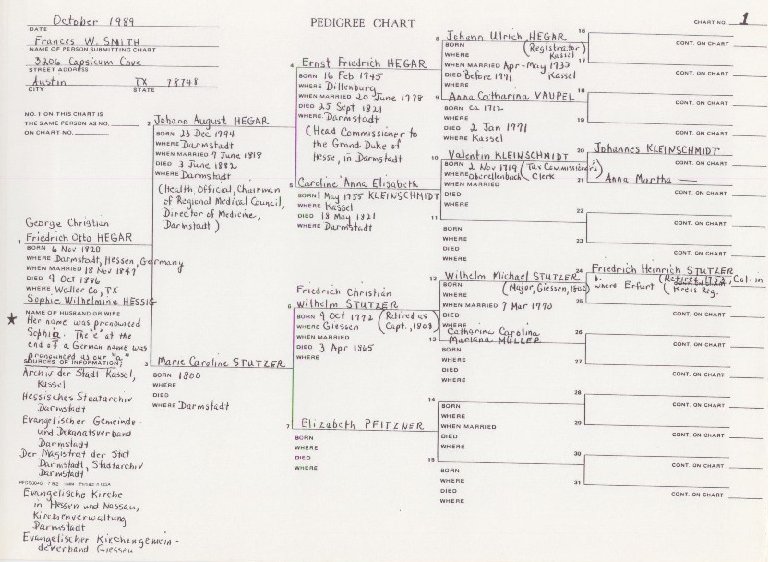 October 1989
DATE
Francis W. SMITH
NAME OF PERSON SUBMITTING CHART
3206 Capsicum Cove
STREET ADDRESS
Austin TX 78748
CITY STATE
PEDIGREE CHART
CHART NO. 1
NO. 1 ON THIS CHART IS
THE SAME PERSON AS NO.
ON CHART NO.
George Christian
1 Friedrich Otto HEGAR
BORN 6 Nov 1820
WHERE Darmstadt, Hessen, Germany
WHEN MARRIED 18 Nov 1847
DIED 9 Oct 1886
WHERE Waller Co, TX
Sophie Wilhelmina HESSIG
NAME OF HUSBAND OR WIFE
★ Her name was pronounced
Sophia. The "e" at the
end of a German name was
pronounced as our "a"
SOURCES OF INFORMATION:
Archiv der Stadt Kassel,
Kassel
Hessisches Staatarchiv
Darmstadt
Evangelischer Gemeinde-
und Dekanatsverband
Darmstadt
Der Magistrat der Stat
Darmstadt, Stadtarchiv
Darmstadt
Evangelische Kirche
in Hessen und Nassau,
Kirchenverwaltung
Darmstadt
Evangelischer Kirchengemein-
deverband Giessen
2 Johann August HEGAR
BORN 23 Dec 1794
WHERE Darmstadt
WHEN MARRIED 7 June 1819
DIED 3 June 1882
WHERE Darmstadt
(Health Official, Chairman
of Regional Medical Council,
Director of Medicine,
Darmstadt)
3 Marie Caroline STUTZER
BORN 1800
WHERE
DIED
WHERE Darmstadt
4 Ernst Friedrich HEGAR
BORN 16 Feb 1745
WHERE Dillenburg
WHEN MARRIED 20 June 1778
DIED 25 Sept 1821
WHERE Darmstadt
(Head Commissioner to
the Grand Duke of
Hesse, in Darmstadt)
5 Caroline Anne Elisabeth
BORN 1 May 1755 KLEINSCHMIDT
WHERE Kassel
DIED 18 May 1821
WHERE Darmstadt
Friedrich Christian
6 Wilhelm STUTZER
BORN 9 Oct 1772 (Retired as
WHERE Giessen Capt., 1808)
WHEN MARRIED
DIED 3 Apr 1865
WHERE
7 Elizabeth PFITZNER
BORN
WHERE
DIED
WHERE
8 Johann Ulrich HEGAR
BORN (Registrator)
WHERE Kassel
WHEN MARRIED Apr-May 1732
DIED Before 1771 Kassel
WHERE
9 Anna Catharina VAUPEL
BORN ca 1712
WHERE
DIED 2 Jan 1771
WHERE Kassel
10 Valentin KLEINSCHMIDT
BORN 2 Nov 1719 (Tax Commissioner's
WHERE Oberellenbach Clerk)
WHEN MARRIED
DIED
WHERE
11
BORN
WHERE
DIED
WHERE
12 Wilhelm Michael STUTZER
BORN (Major, Giessen, 1802)
WHERE
WHEN MARRIED 7 Mar 1770
DIED
WHERE Catharina Carolina
13 Marlena MÜLLER
BORN
WHERE
DIED
WHERE
14
BORN
WHERE
WHEN MARRIED
DIED
WHERE
15
BORN
WHERE
DIED
WHERE
16
CONT. ON CHART
17
CONT. ON CHART
18
CONT. ON CHART
19
CONT. ON CHART
20 Johannes KLEINSCHMIDT
CONT. ON CHART
21 Anna Martha —
CONT. ON CHART
22
CONT. ON CHART
23
CONT. ON CHART
24 Friedrich Heinrich STUTZER
b.
where Erfurt
Kreis Reg.
25
CONT. ON CHART
26
CONT. ON CHART
27
CONT. ON CHART
28
CONT. ON CHART
29
CONT. ON CHART
30
CONT. ON CHART
31
CONT. ON CHART